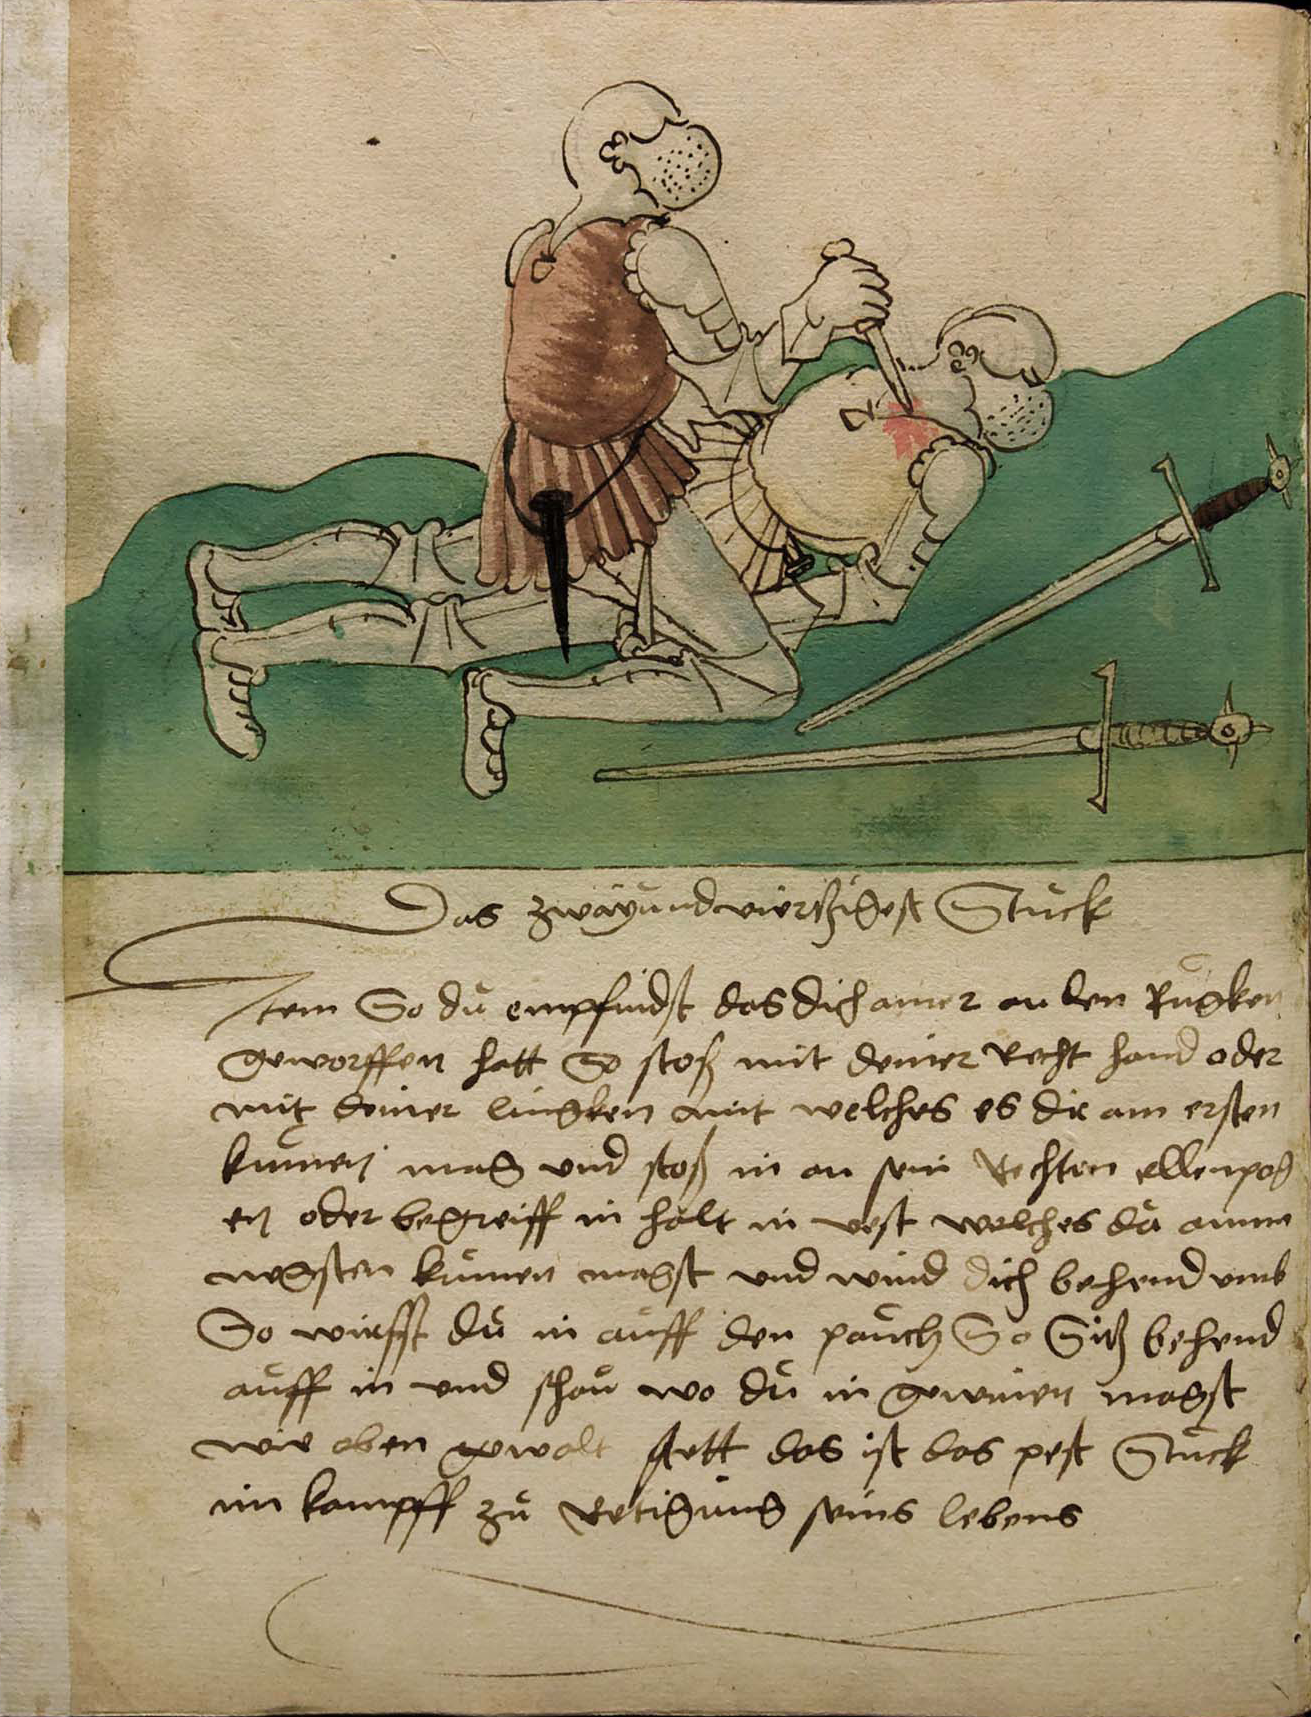 Das zwayundviertzigest Stuck
Item So du empfindst das dich ainer an den Rugken
geworffen hatt So stoß mit deiner Recht hand oder
mit deiner lingken mit welches es dir am ersten
kumen mag und stoß in an sein Rechten ellenpog
en oder begreiff in halt in vest welches du
negsten kumen magst und wind dich behend umb
So wirfst du in auff den pauch So Sitz behend
auff in und schau wo du in gewinen magst
wie oben stett das ist das pest Stuck
im kampff zu Retigung seins lebens